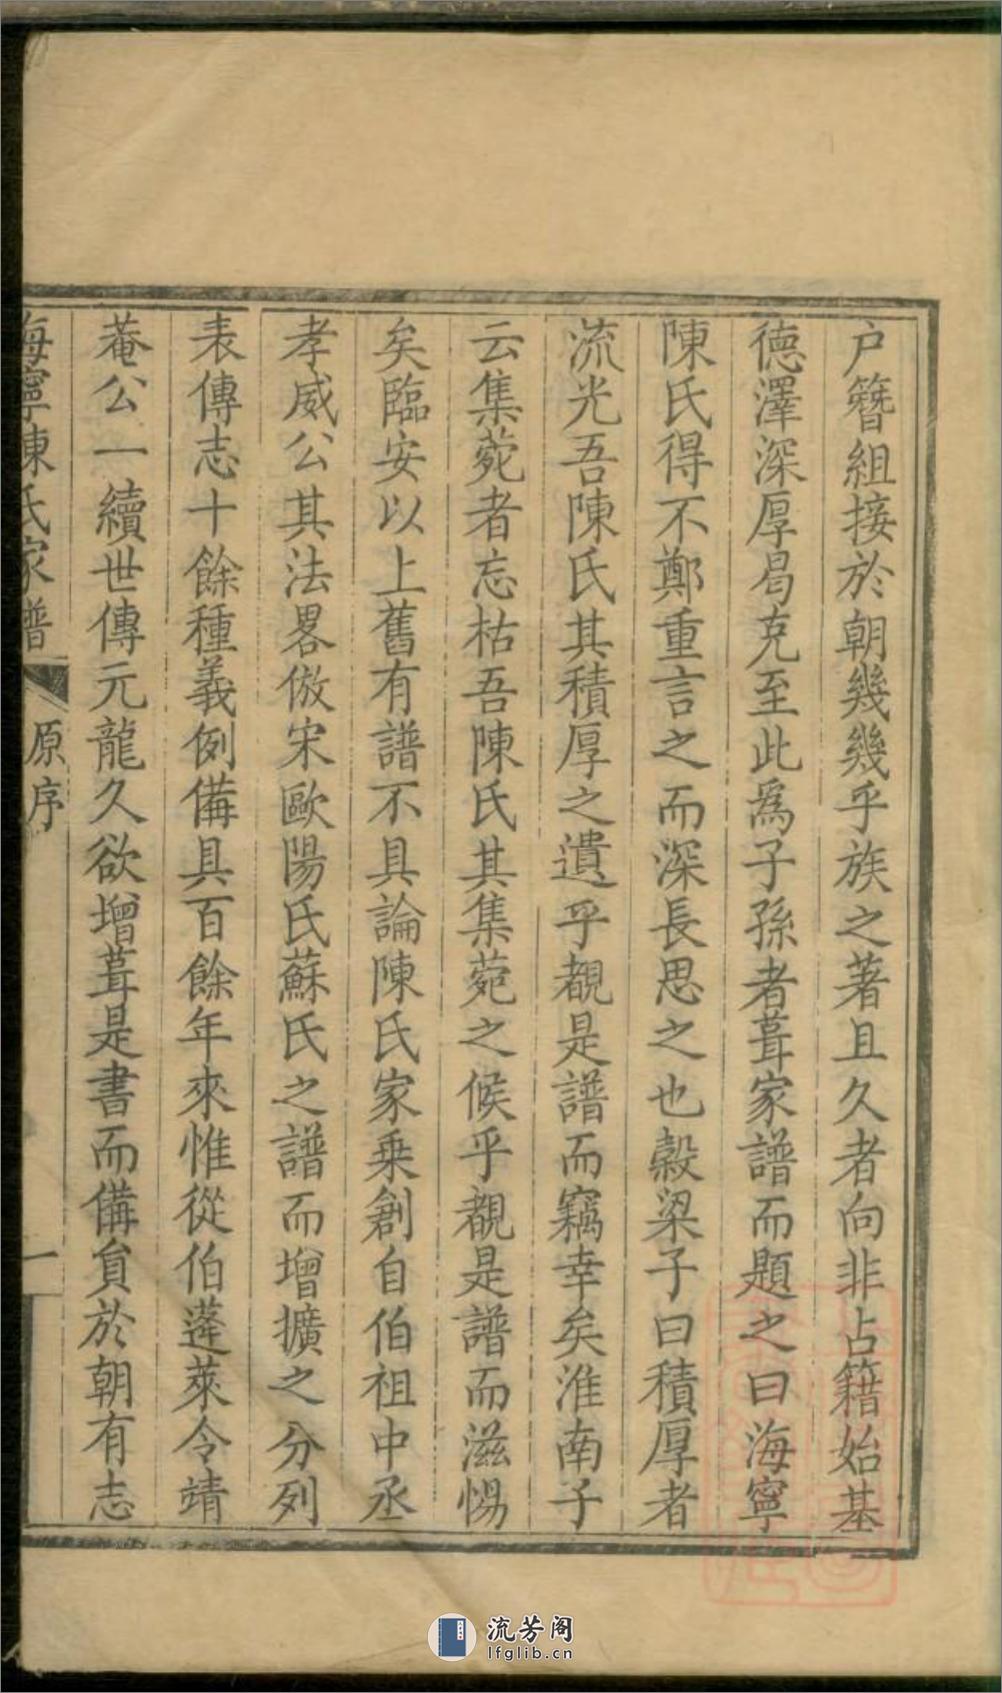 户簪組接於朝幾幾乎族之著且久者向非占籍始基
德澤深厚曷克至此爲子孫者葺家譜而題之曰海寧
陳氏得不鄭重言之而深長思之也穀梁子曰積厚者
流光吾陳氏其積厚之遺乎觀是譜而竊幸矣淮南子
云集菀者忘枯吾陳氏其集菀之候乎觀是譜而滋惕
矣臨安以上舊有譜不具論陳氏家乗創自伯祖中丞
孝威公其法畧倣宋歐陽氏蘇氏之譜而增擴之分列
表傳志十餘種義例備具百餘年來惟從伯蓬萊令靖
菴公一續世傳元龍久欲增葺是書而備負於朝有志
海寧陳氏家譜 原序 一
流芳阁
lfglib.cn